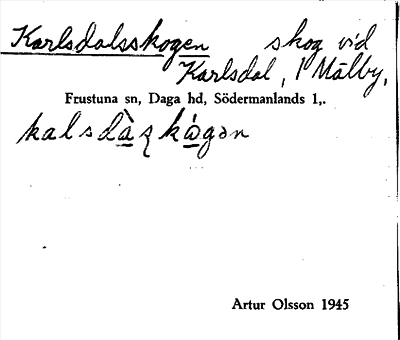 Karlsdalsskogen skog vid
Karlsdal, 1 Målby,
Frustuna sn, Daga hd, Södermanlands l,.
Artur Olsson 1945